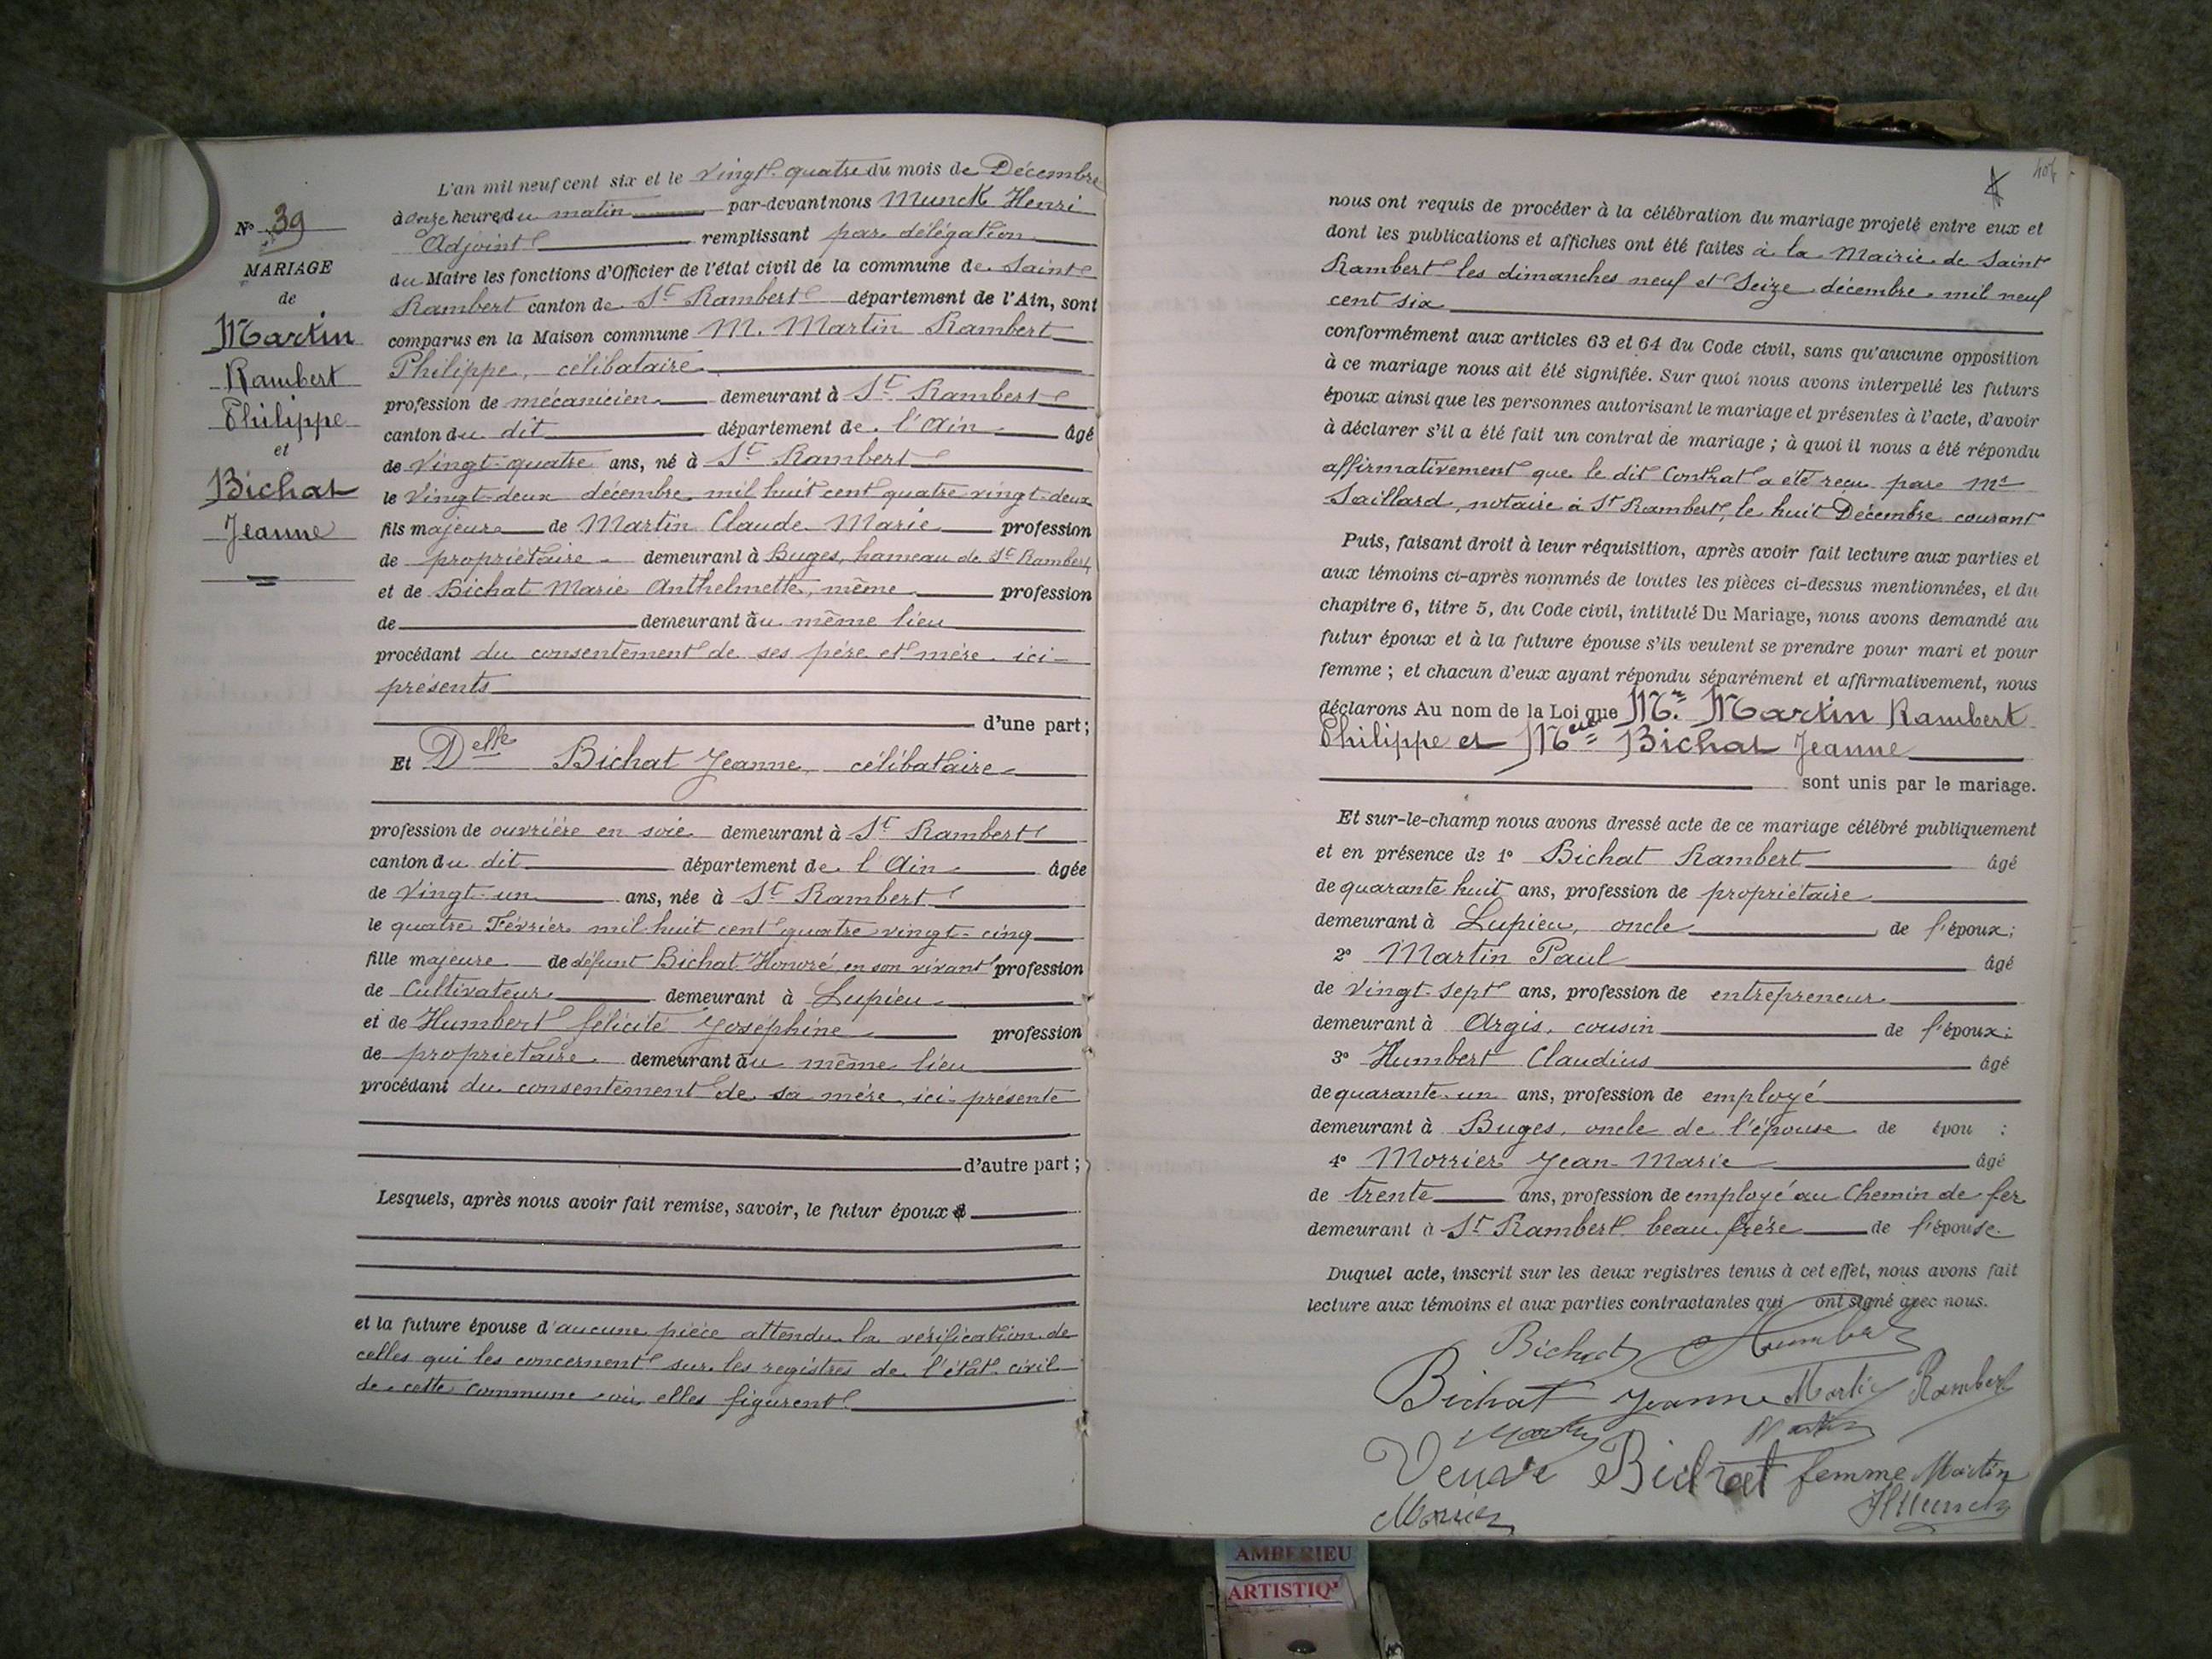 L'an mil neuf cent six et le vingt-quatre du mois de Décembre
à onze heures du matin par-devant nous Munck Henri
Adjoint remplissant par délégation
du Maire les fonctions d'Officier de l'état civil de la commune de Saint
Rambert canton de St Rambert département de l'Ain, sont
comparus en la Maison commune M. Martin Rambert
Philippe, célibataire
profession de mécanicien demeurant à St Rambert
canton du dit département de l'Ain âgé
de vingt-quatre ans, né à St Rambert
le vingt-deux décembre mil huit cent quatre vingt-deux
fils majeur de Martin Claude Marie profession
de propriétaire demeurant à Buges, hameau de St Rambert
et de Bichat Marie Anthelmette, même profession
de demeurant au même lieu
procédant du consentement de ses père et mère ici-
présents
d'une part;
Et Delle Bichat Jeanne, célibataire
profession de ouvrière en soie demeurant à St Rambert
canton du dit département de l'Ain âgée
de vingt-un ans, née à St Rambert
le quatre Février mil huit cent quatre vingt-cinq
fille majeure de défunt Bichat Honoré, en son vivant profession
de Cultivateur demeurant à Lupieu
et de Humbert félicité Joséphine profession
de propriétaire demeurant au même lieu
procédant du consentement de sa mère, ici-présente
d'autre part;
Lesquels, après nous avoir fait remise, savoir, le futur époux
et la future épouse d'aucune pièce attendu la vérification de
celles qui les concernent sur les registres de l'état civil
de cette commune où elles figurent
N° 39
MARIAGE
de
Martin
Rambert
Philippe
et
Bichat
Jeanne
nous ont requis de procéder à la célébration du mariage projeté entre eux et
dont les publications et affiches ont été faites à la Mairie de Saint
Rambert les dimanches neuf et Seize décembre mil neuf
cent six
conformément aux articles 63 et 64 du Code civil, sans qu'aucune opposition
à ce mariage nous ait été signifiée. Sur quoi nous avons interpellé les futurs
époux ainsi que les personnes autorisant le mariage et présentes à l'acte, d'avoir
à déclarer s'il a été fait un contrat de mariage; à quoi il nous a été répondu
affirmativement que le dit Contrat a été reçu par Me
Saillard, notaire à St Rambert, le huit Décembre courant
Puis, faisant droit à leur réquisition, après avoir fait lecture aux parties et
aux témoins ci-après nommés de toutes les pièces ci-dessus mentionnées, et du
chapitre 6, titre 5, du Code civil, intitulé Du Mariage, nous avons demandé au
futur époux et à la future épouse s'ils veulent se prendre pour mari et pour
femme; et chacun d'eux ayant répondu séparément et affirmativement, nous
déclarons Au nom de la Loi que Mr Martin Rambert
Philippe et Melle Bichat Jeanne
sont unis par le mariage.
Et sur-le-champ nous avons dressé acte de ce mariage célébré publiquement
et en présence de 1° Bichat Rambert âgé
de quarante huit ans, profession de propriétaire
demeurant à Lupieu, oncle de l'époux;
2° Martin Paul âgé
de vingt-sept ans, profession de entrepreneur
demeurant à Argis, cousin de l'époux;
3° Humbert Claudius âgé
de quarante-un ans, profession de employé
demeurant à Buges, oncle de l'épouse de épou :
4° Morrier Jean-Marie âgé
de trente ans, profession de employé au Chemin de fer
demeurant à St Rambert beau frère de l'épouse
Duquel acte, inscrit sur les deux registres tenus à cet effet, nous avons fait
lecture aux témoins et aux parties contractantes qui ont signé avec nous.
Bichat Humbert
Bichat Jeanne Martin Rambert
Martin Martin
Veuve Bichat femme Martin
Morrier HMunck
AMBERIEU
ARTISTIQ